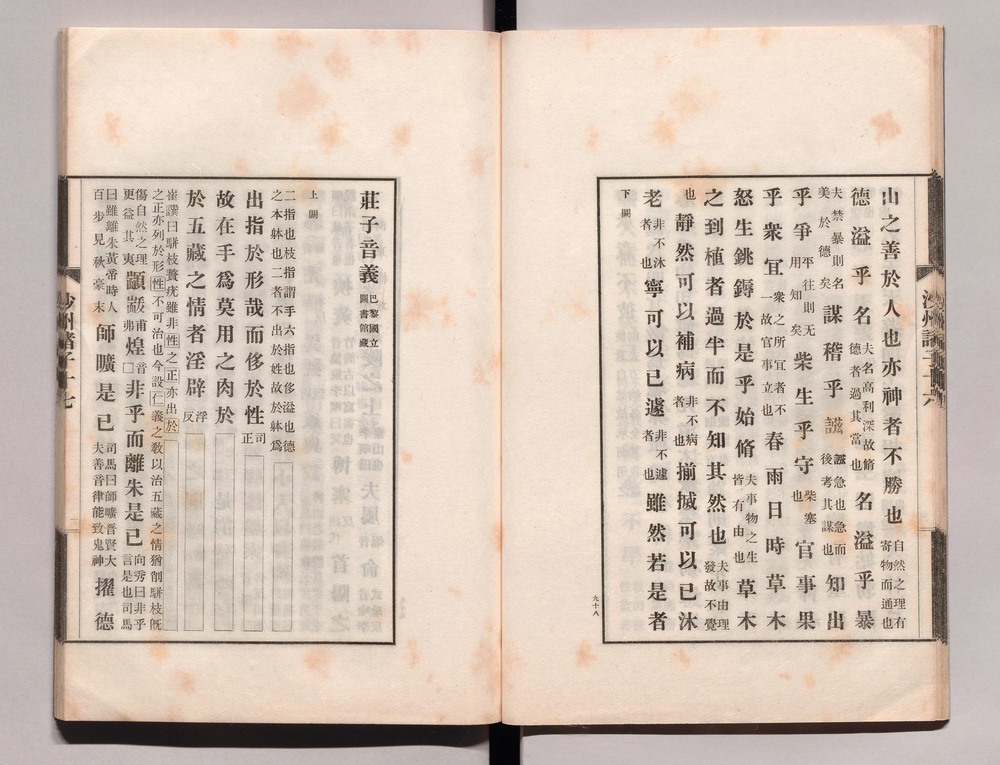 山之善於人也亦神者不勝也 自然之理有寄物而通也
德溢乎名 夫名高利深故脩德者過其當也 名溢乎暴
夫禁暴則名美於德矣 謀稽乎誸 誸急也急而後考其謀也 知出
乎爭 平往則无用知矣 柴生乎守 柴塞也 官事果
乎衆宜 衆之所宜者不一故官事立也 春雨日時草木
怒生銚鎒於是乎始脩 夫事物之生皆有由也 草木
之到植者過半而不知其然也 夫事由理發故不覺
也 靜然可以補病 非不病者也 揃搣可以已沐
老 非不沐者也 寧可以已遽 非不遽者也 雖然若是者
下闕
九十八
沙州諸子二十六
莊子音義 巴黎國立圖書館藏
上闕
二指也枝指謂手六指也侈溢也德之本躰也二者不出於姓故於躰爲
出指於形哉而侈於性 司正
故在手爲莫用之肉於
於五藏之情者淫辟 浮反
崔譔曰駢枝贅疣雖非性之正亦出於
之正亦列於形性不可治也今設仁義之敎以治五藏之情猶削駢枝旣
傷自然之理更益其夷 甫弗 煌 音□ 非乎而離朱是已 向秀曰非乎言是也司馬
曰雖離朱黃帝時人百步見秋豪末 師曠是已 司馬曰師曠晉賢大夫善音律能致鬼神 擢德
沙州諸子二十七